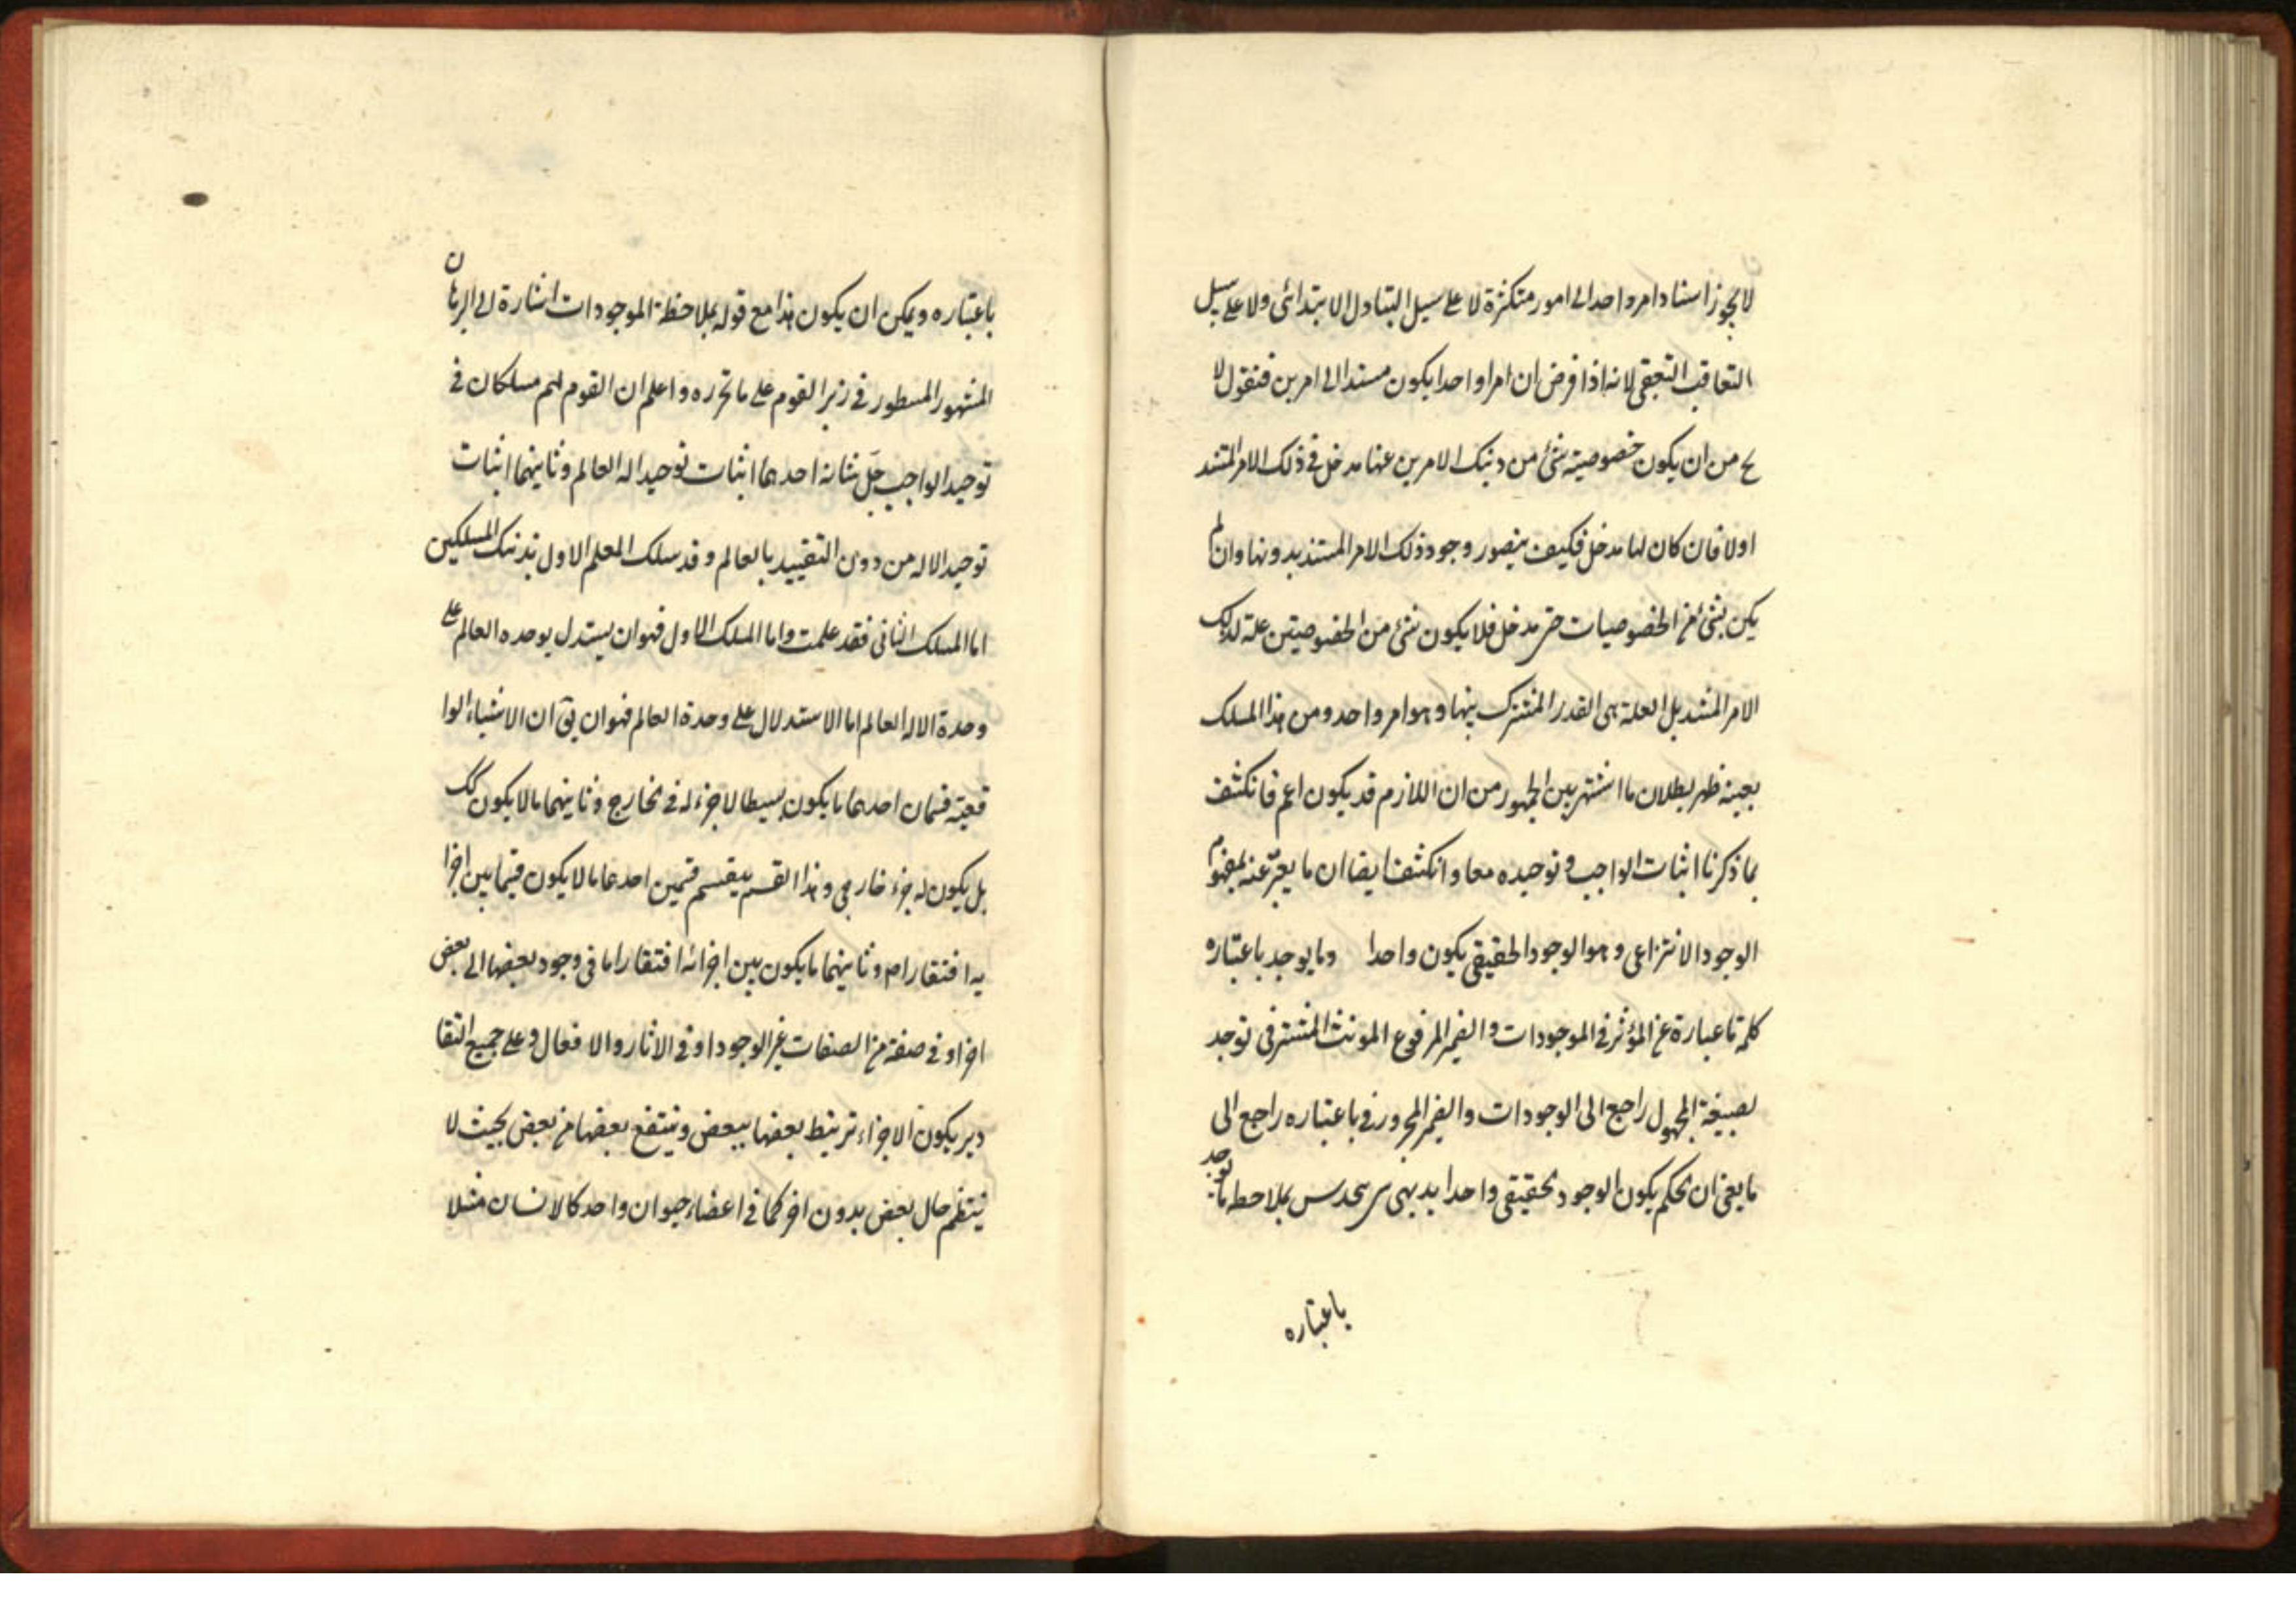 لا يجوز استناد امر واحد الى امور متكثرة لا على سبيل التبادل الابتدائى ولا على سبيل
التعاقب التحققى لانه اذا فرض ان امرا واحدا يكون مستندا الى امرين فنقول لا
يخ من ان يكون خصوصية شئ من ذينك الامرين عنها مدخل فى ذلك الامر المستند
اولا فان كان لها مدخل فكيف يتصور وجود ذلك الامر المستند بدونها وان لم
يكن بشئ من الخصوصيات مدخل فلا يكون شئ من الخصوصيتين علة لذلك
الامر المستند بل العلة هى القدر المشترك بينها وهو امر واحد ومن هذا المسلك
بعينه ظهر بطلان ما اشتهر بين الجمهور من ان اللازم قد يكون اعم فانكشف
بما ذكرنا اثبات الواجب وتوحيده معا وانكشف ايضا ان ما يعبر عنه بمفهوم
الوجود الانتزاعى وهو الوجود الحقيقى يكون واحدا وما يوجد باعتباره
كلمة ما عبارة عن المؤثر فى الموجودات والضمير المرفوع المونث المستتر فى توجد
بصيغة المجهول راجع الى الوجودات والضمير المجرور فى باعتباره راجع الى
ما يعنى ان الحكم يكون الوجود الحقيقى واحدا بديهى حدس بملاحظه ما توجد
باعتباره
باعتباره ويمكن ان يكون هذا مع قوله بملاحظة الموجودات اشارة الى البرهان
المشهور المسطور فى زبر القوم على ما تحرره واعلم ان القوم لهم مسلكان فى
توحيد الواجب جل شانه احدهما اثبات توحيد اله العالم وثانيهما اثبات
توحيد الاله من دون التقييد بالعالم وقد سلك المعلم الاول بذينك المسلكين
اما المسلك الثانى فقد علمت واما المسلك الاول فهو ان يستدل بوحده العالم على
وحدة الاله العالم اما الاستدلال على وحدة العالم فهو ان يق ان الاشياء الوا
قعية قسمان احدهما ما يكون بسيطا لا جزء له فى الخارج وثانيهما ما لا يكون كك
بل يكون له جزء خارجى وهذا القسم ينقسم قسمين احدهما ما لا يكون فيما بين اجزا
يه افتقار ام وثانيهما ما يكون بين اجزائه افتقار اما فى وجود بعضها الى بعض
اخر او فى صفة من الصفات غير الوجود او فى الاثار والافعال وعلى جميع التقا
دير يكون الاجزاء ترتبط بعضها ببعض وينتفع بعضها من بعض بحيث لا
ينتظم حال بعض بدون اخر كما فى اعضاء حيوان واحد كالانسان مثلا